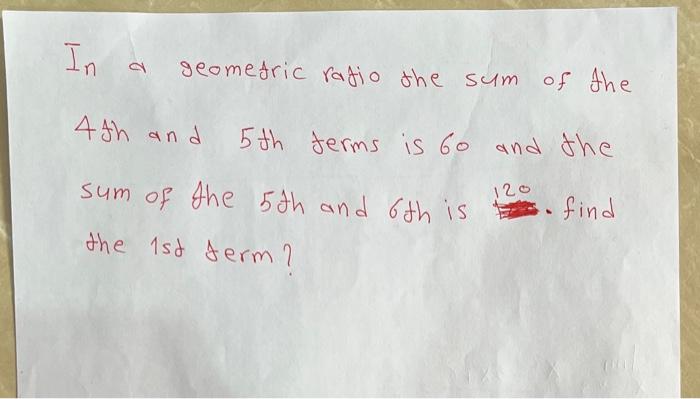 In a geometric ratio the sum of the
4th and 5th terms is 60 and the
sum of the 5th and 6th is 120. find
the 1st term?